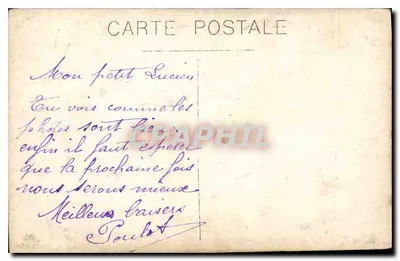 CARTE POSTALE
Mon petit Lucien
Tu vois comme les
photos sont
enfin il faut espérer
que la prochaine fois
nous serons mieux
Meilleurs baisers
Poulot
CPAPHIL